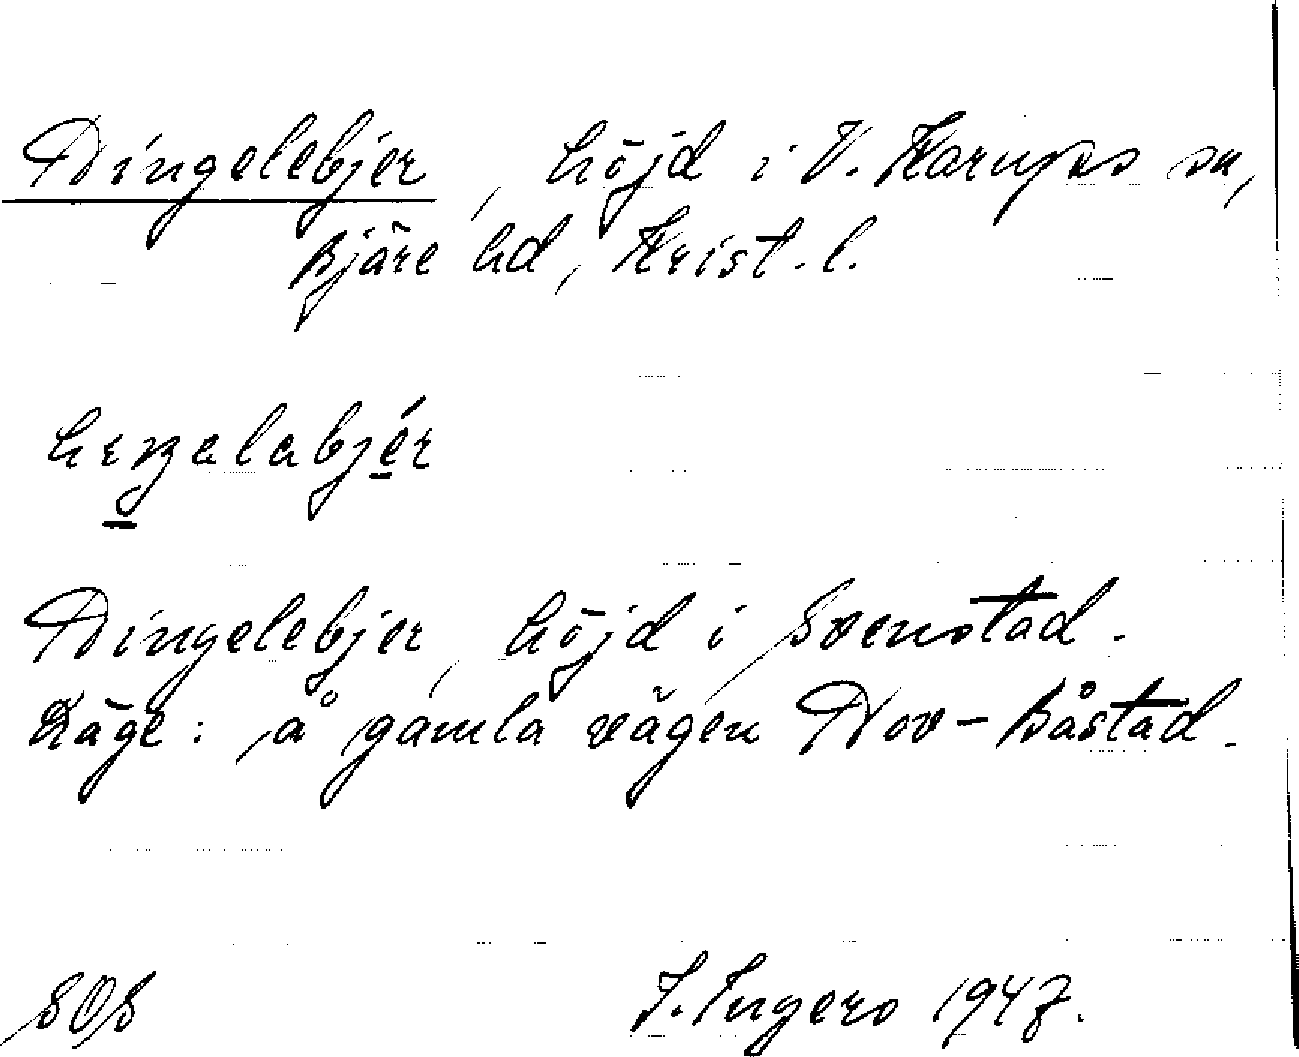 Hingelebjer, höjd i V. Karups sn,
Bjäre hd, Krist. l.
Hingelebjer, höjd i Svenstad.
Läge: å gamla vägen Hov - Båstad.
SOS
I. Ingers 1947.